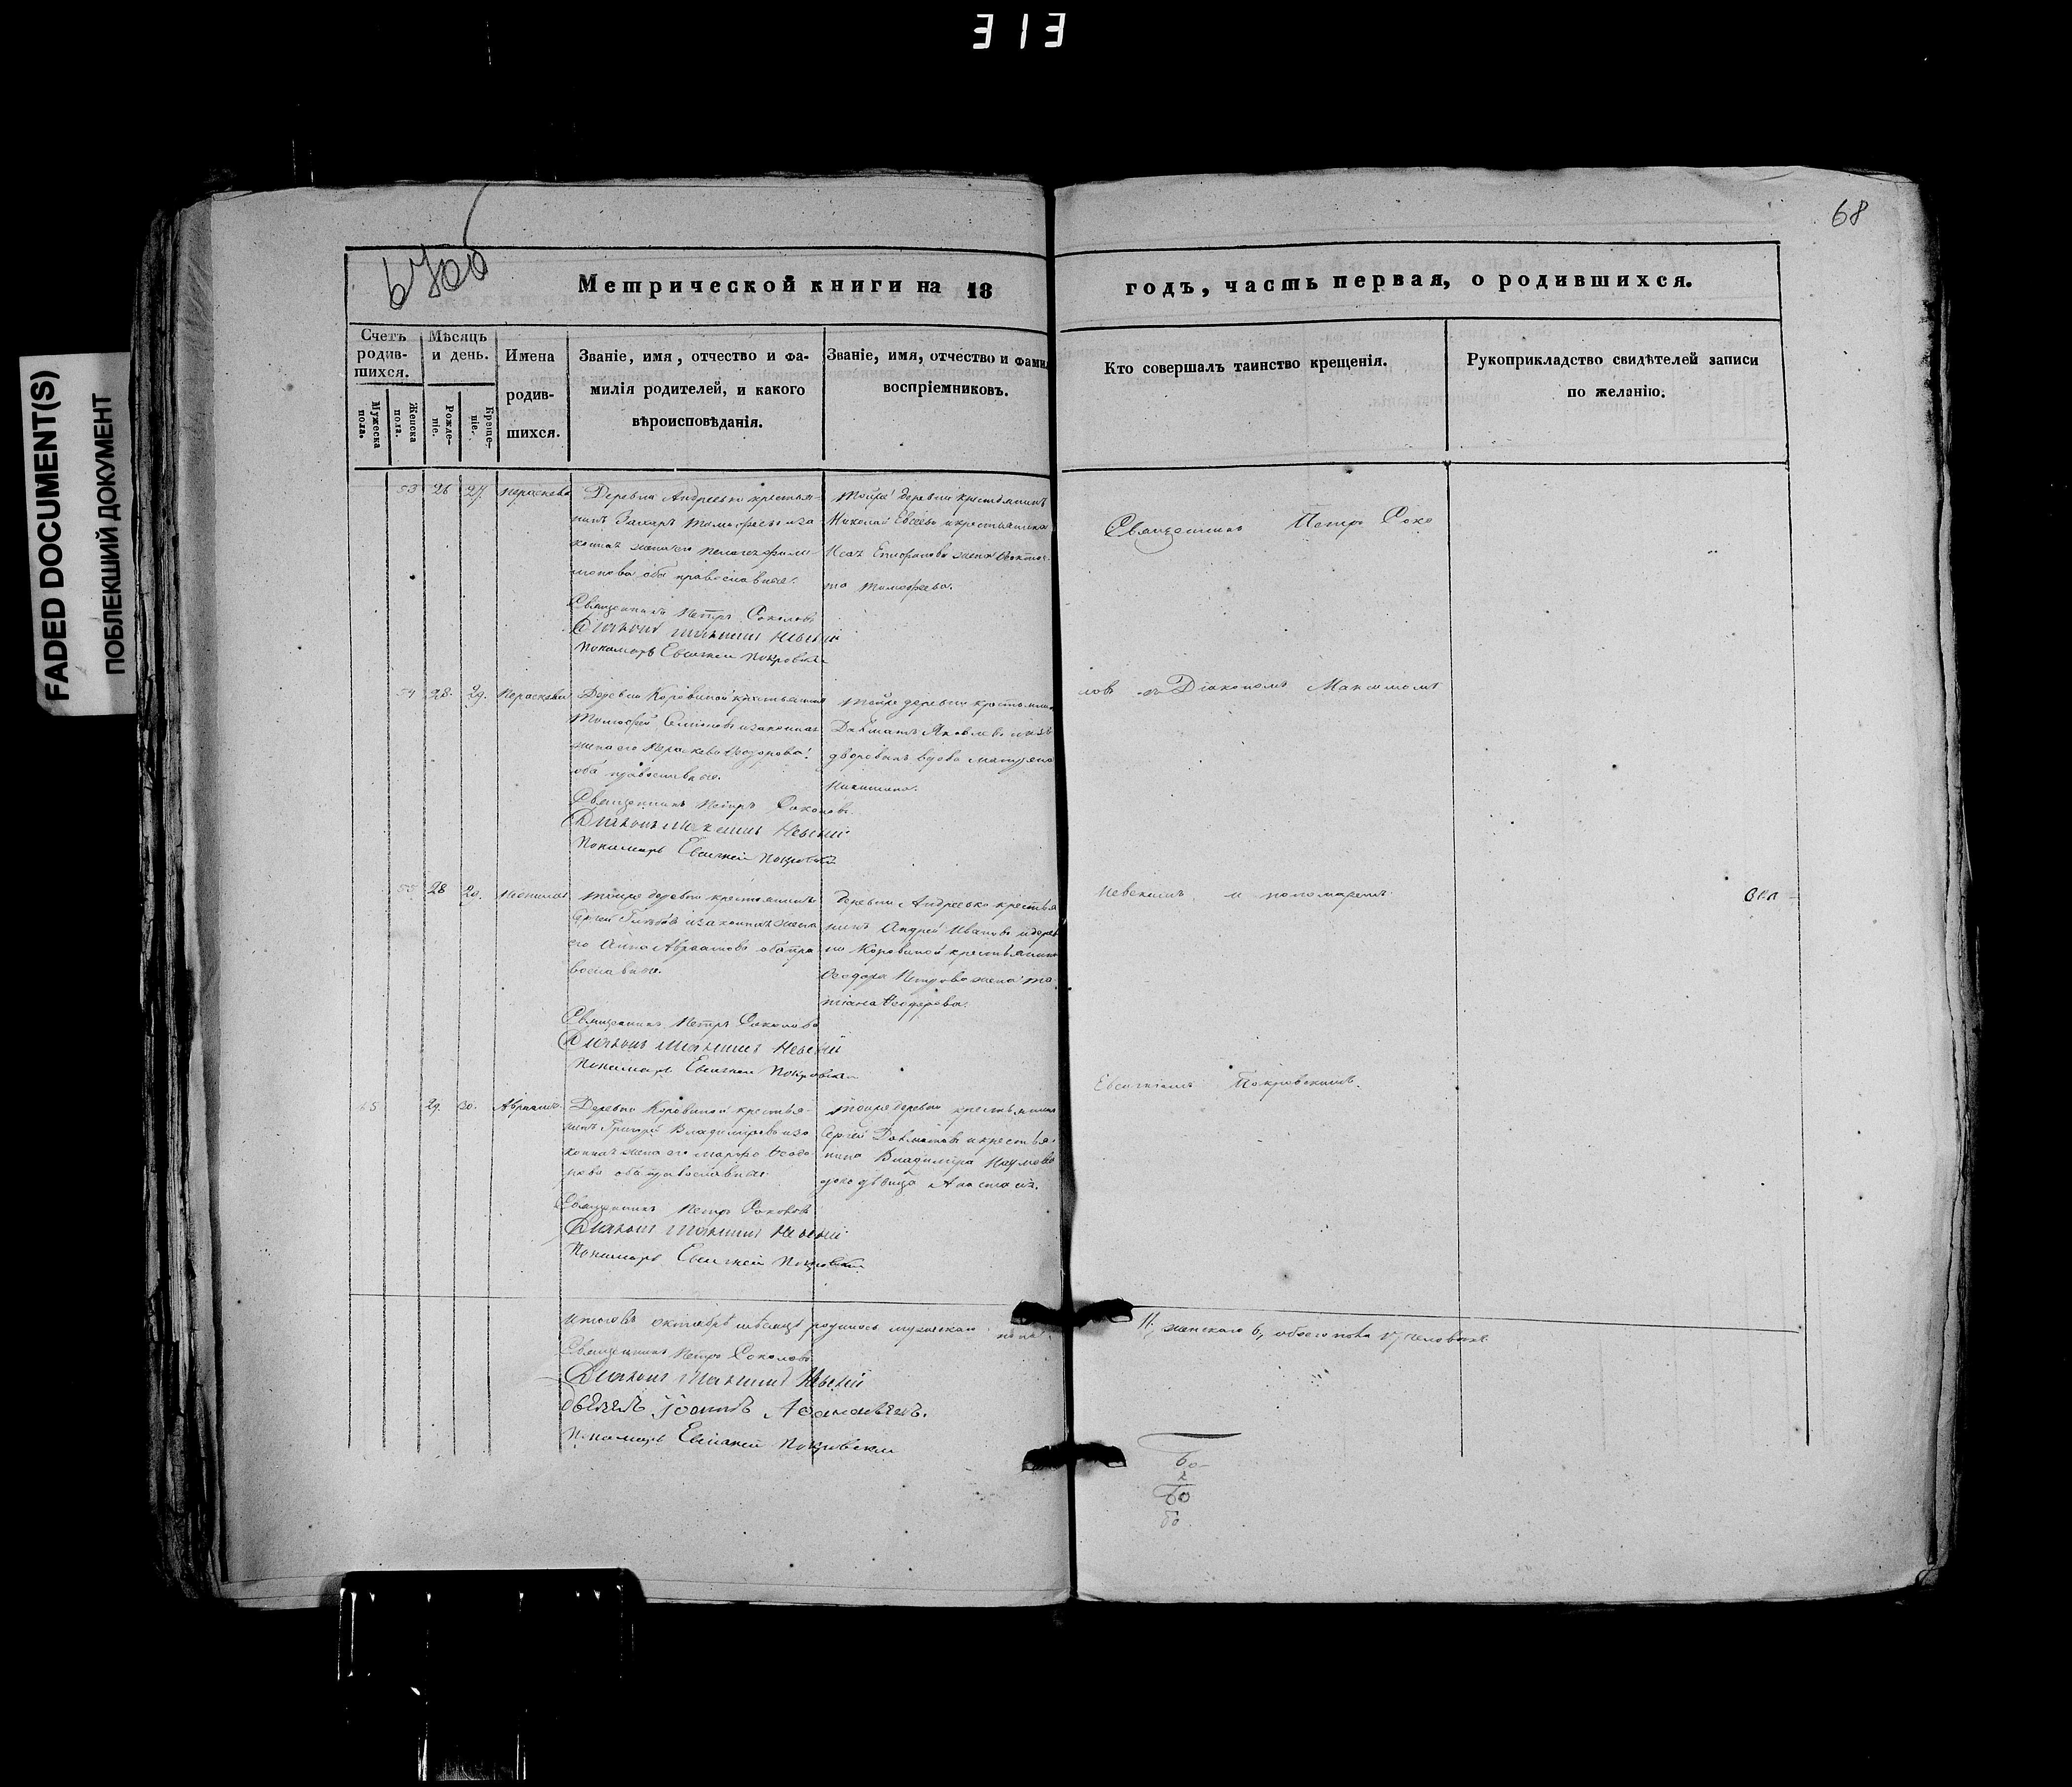 313
68
FADED DOCUMENT(S)
ПОБЛЕКШИЙ ДОКУМЕНТ
Метрической книги на 18 годъ, часть первая, о родившихся.
Счетъ родив-шихся.
Мужеска пола.
Женска пола.
Мѣсяцъ и день.
Рожде-ніе.
Креще-ніе.
Имена
родив-
шихся.
Званіе, имя, отчество и фа-
милія родителей, и какого
вѣроисповѣданія.
Званіе, имя, отчество и фами
воспріемниковъ.
Кто совершалъ таинство крещенія.
Рукоприкладство свидѣтелей записи
по желанію.
53 26 27. Параскева
Деревни Андреевки крестьян-
нинъ Захаръ Тимофеевъ и за
конная жена его Пелагея Фили-
монова оба православные.
Священникъ Петръ Соколовъ
Діаконъ Максимъ Невскій
Пономарь Евсигней Покровскій
Тойже деревни крестьянинъ
Николай Евсеевъ и крестьянина
Епифанова жена
Тимофеева.
Священникъ Петръ Соко
54 28. 29. Параскева
Деревни Коровиной крестьянинъ
Тимофей Семіоновъ и законная
жена его Параскева Ѳеодорова
оба православные.
Священникъ Петръ Соколовъ
Діаконъ Максимъ Невскій
Пономарь Евсигней Покровскій
Тойже деревни крестьянинъ
Давматъ Яковлевъ и изъ
дворовыхъ вдова Матрена
Никитина.
ловъ съ Діакономъ Максимомъ
55 28 29.
Тойже деревни крестьянинъ
и законная жена
его Анна Авраамова оба пра
вославные.
Священникъ Петръ Соколовъ
Діаконъ Максимъ Невскій
Пономарь Евсигней Покровскій
Деревни Андреевки крестья
нинъ Андрей Ивановъ и дерев
ни Коровиной крестьянина
Ѳеодора Петрова жена Та
тіана Ѳеодорова.
Невскимъ и пономаремъ
65 29. 30. Авраамій
Деревни Коровиной крестья-
нинъ Григорій Владиміровъ и за
конная жена его Марфа Ѳеодо
рова оба православные.
Священникъ Петръ Соколовъ
Діаконъ Максимъ Невскій
Пономарь Евсигней Покровскій
Тойже деревни крестьянинъ
Сергей Давматовъ и крестья-
нина Владиміра Наумова
дочь дѣвица Анастасія.
Евсигніемъ Покровскимъ.
Итого въ октябрѣ мѣсяцѣ родилось мужеска пола 11, женскаго 6, обоего пола 17, человѣкъ.
Священникъ Петръ Соколовъ
Діаконъ Максимъ Невскій
Іоаннъ
Пономарь Евсигней Покровскій